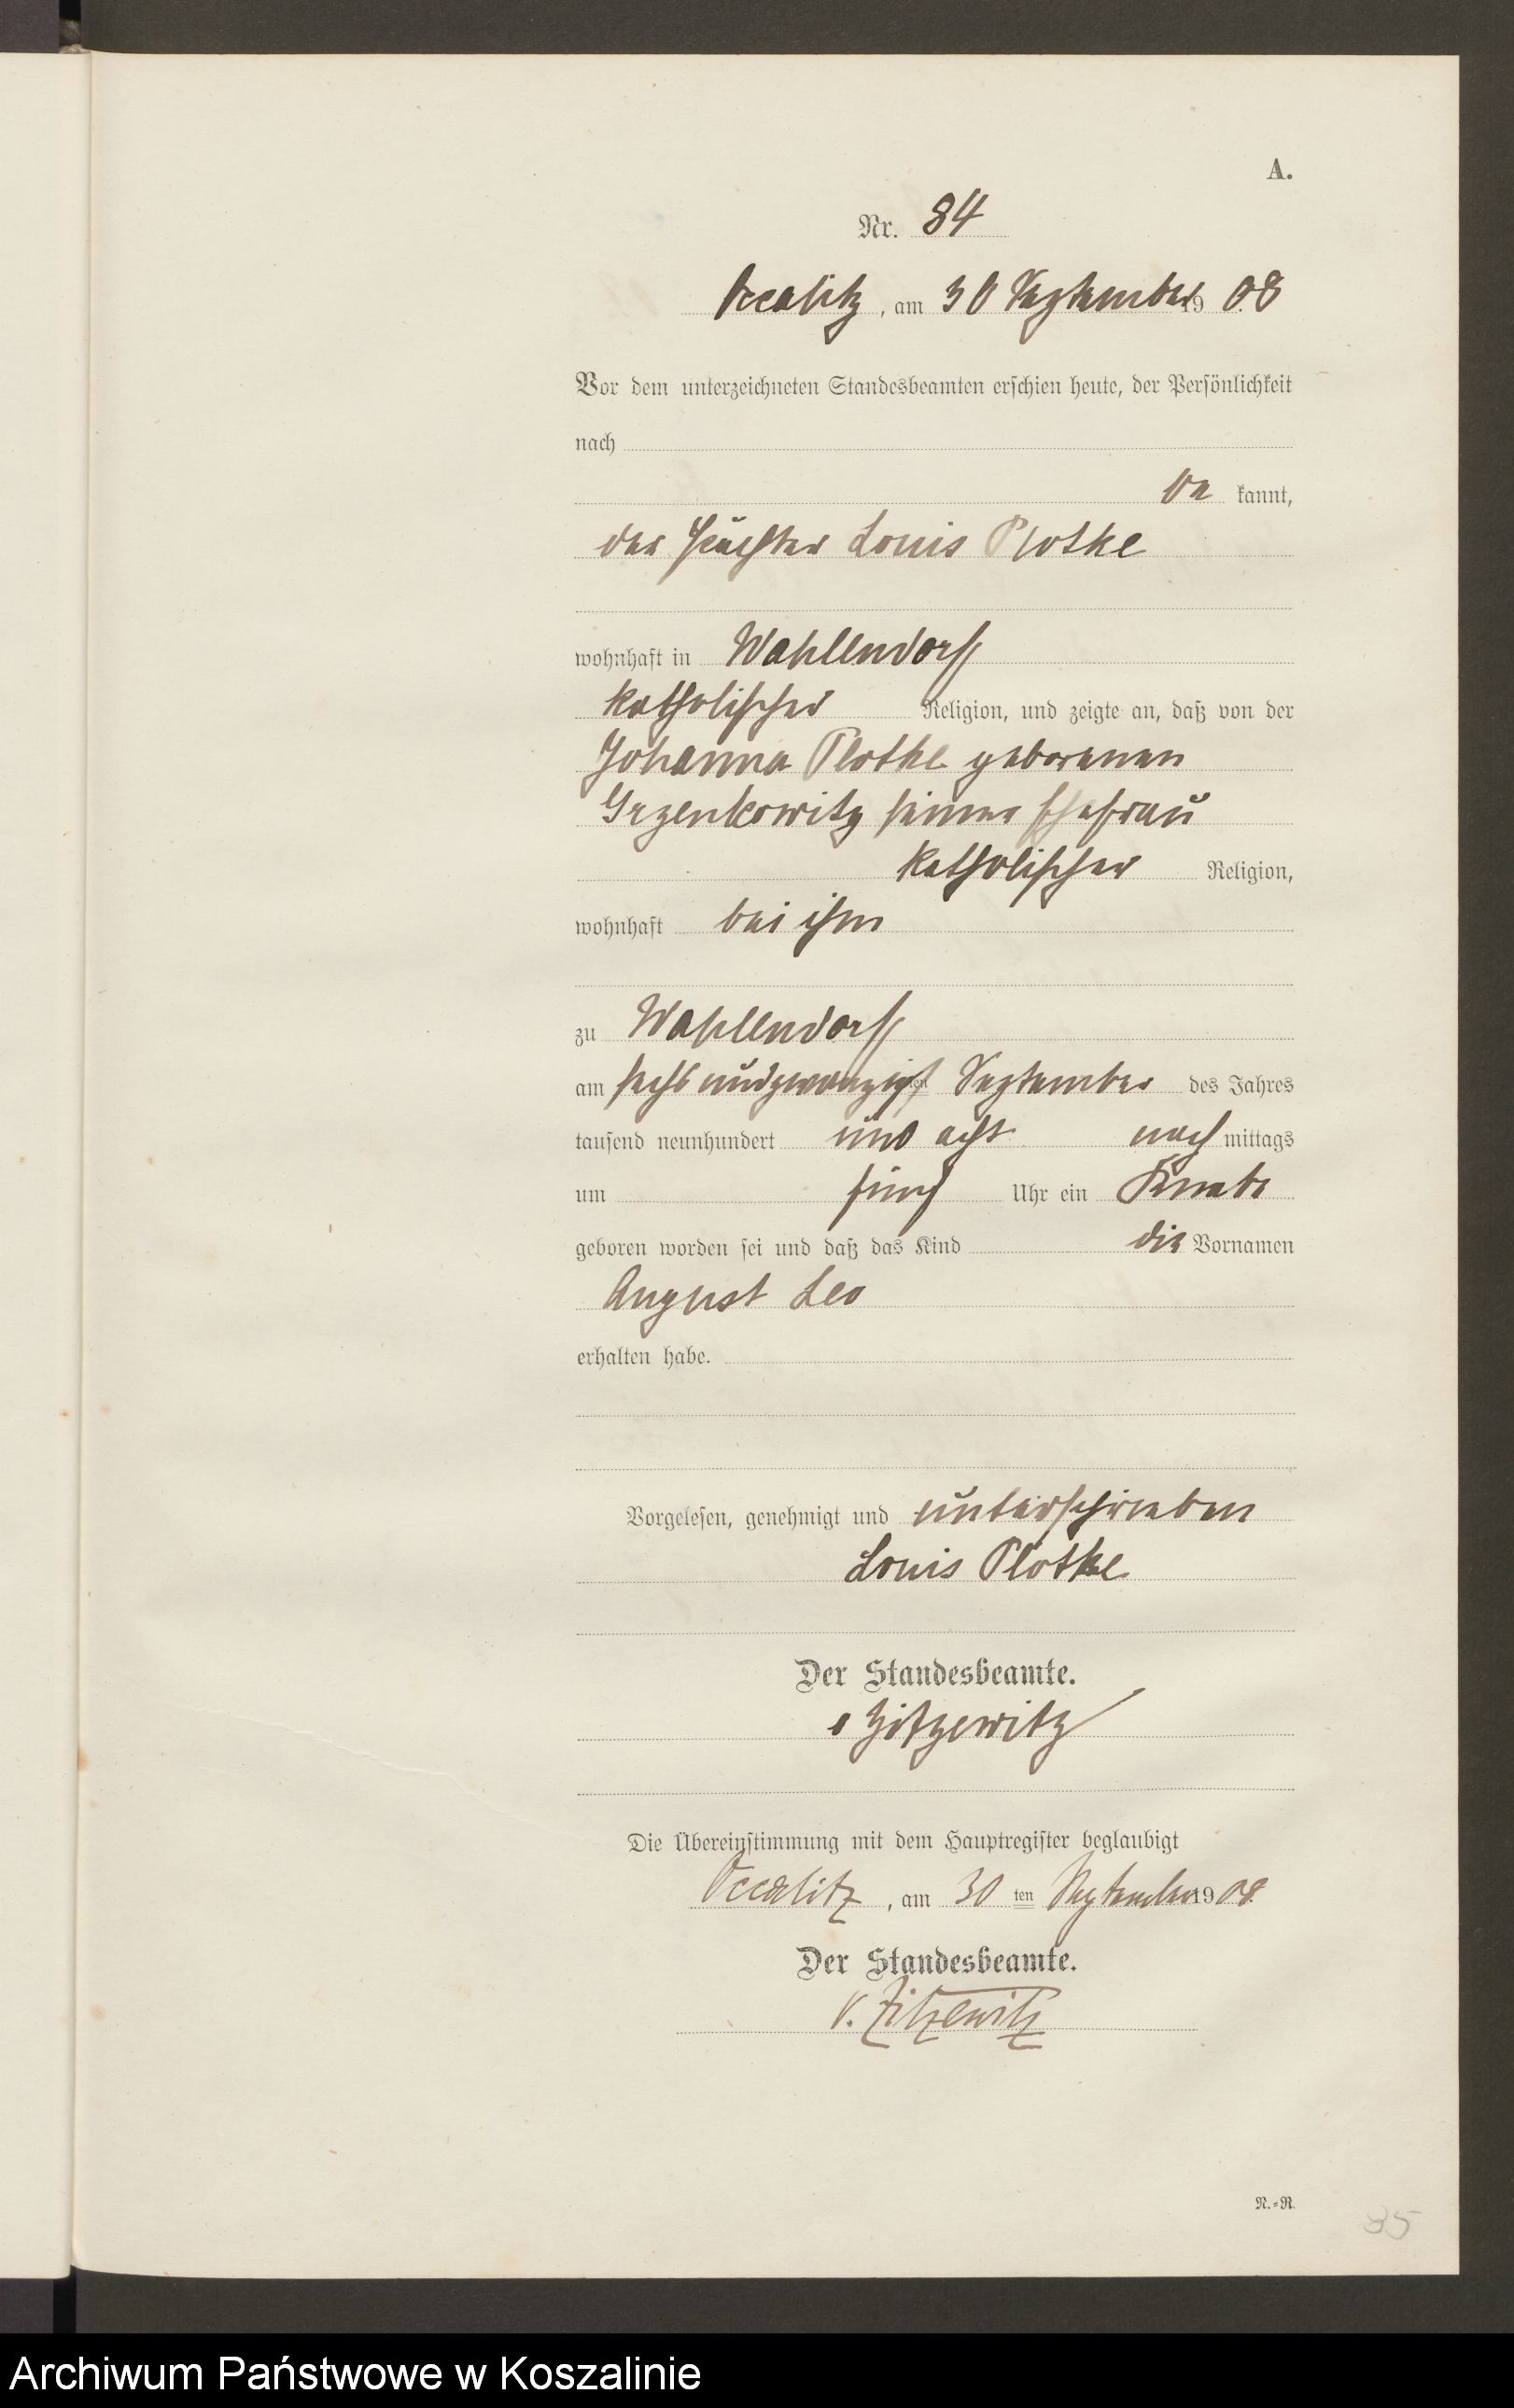 A.
Nr. 84
Occalitz, am 30 September 1908
Vor dem unterzeichneten Standesbeamten erschien heute, der Persönlichkeit
nach
be kannt,
der Pächter Louis Plotke
wohnhaft in Wahlendorf
katholischer Religion, und zeigte an, daß von der
Johanna Plotke geborenen
Grzenkowitz seiner Ehefrau
katholischer Religion,
wohnhaft bei ihm
zu Wahlendorf
am sechsundzwanzigsten September des Jahres
tausend neunhundert und acht nach mittags
um fünf Uhr ein Knabe
geboren worden sei und daß das Kind die Vornamen
August Leo
erhalten habe.
Vorgelesen, genehmigt und unterschrieben
Louis Plotke
Der Standesbeamte.
v Zitzewitz
Die Übereinstimmung mit dem Hauptregister beglaubigt
Occalitz, am 30 ten September 1908.
Der Standesbeamte.
v. Zitzewitz
N.=R.
35
Archiwum Państwowe w Koszalinie